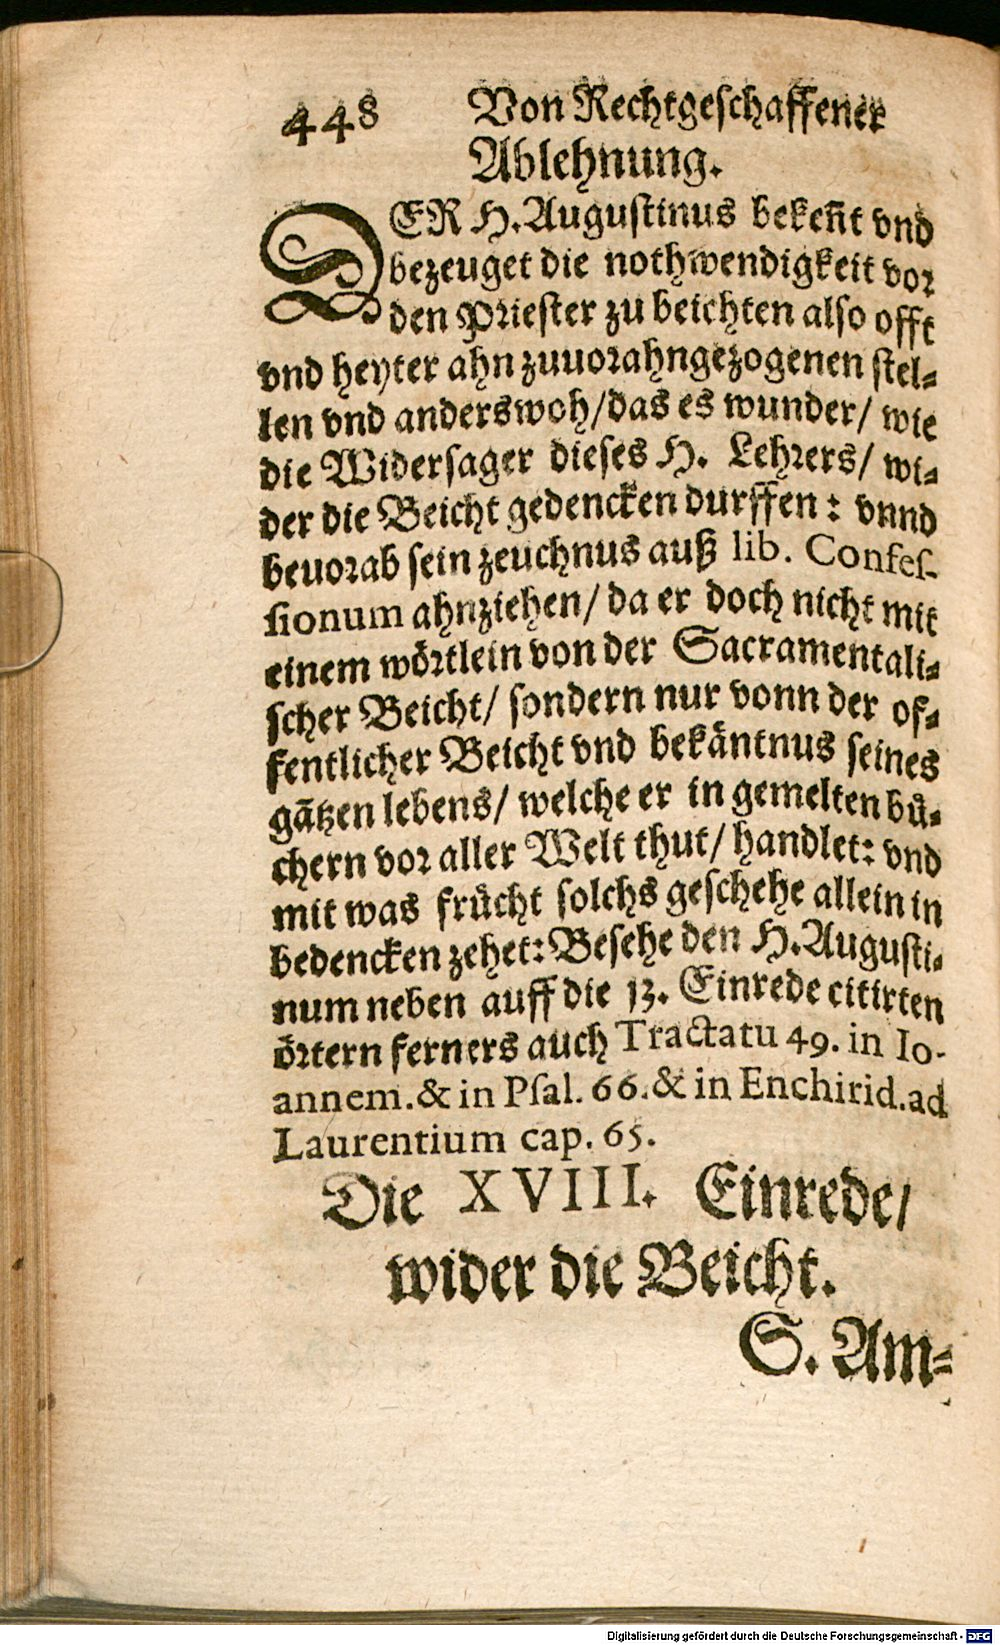 448 Von Rechtgeschaffener
Ablehnung.
DER H. Augustinus bekeñt vnd
bezeuget die nothwendigkeit vor
den Priester zu beichten also offt
vnd heyter ahn zuuorahngezogenen stel⸗
len vnd anderswoh/das es wunder/ wie
die Widersager dieses H. Lehrers/ wi⸗
der die Beicht gedencken durffen: vnnd
beuorab sein zeuchnus auß lib. Confeſ-
ſionum ahnziehen/ da er doch nicht mit
einem wörtlein von der Sacramentali⸗
scher Beicht/ sondern nur vonn der of⸗
fentlicher Beicht vnd bekäntnus seines
gātzen lebens/ welche er in gemelten bů⸗
chern vor aller Welt thut/ handlet: vnd
mit was frůcht solchs geschehe allein in
bedencken zehet: Besehe den H. Augusti⸗
num neben auff die 13. Einrede citirten
örtern ferners auch Tractatu 49. in Io-
annem. & in Pſal. 66. & in Enchirid. ad
Laurentium cap. 65.
Die XVIII. Einrede/
wider die Beicht.
S. Am⸗
Digitalisierung gefördert durch die Deutsche Forschungsgemeinschaft - DFG